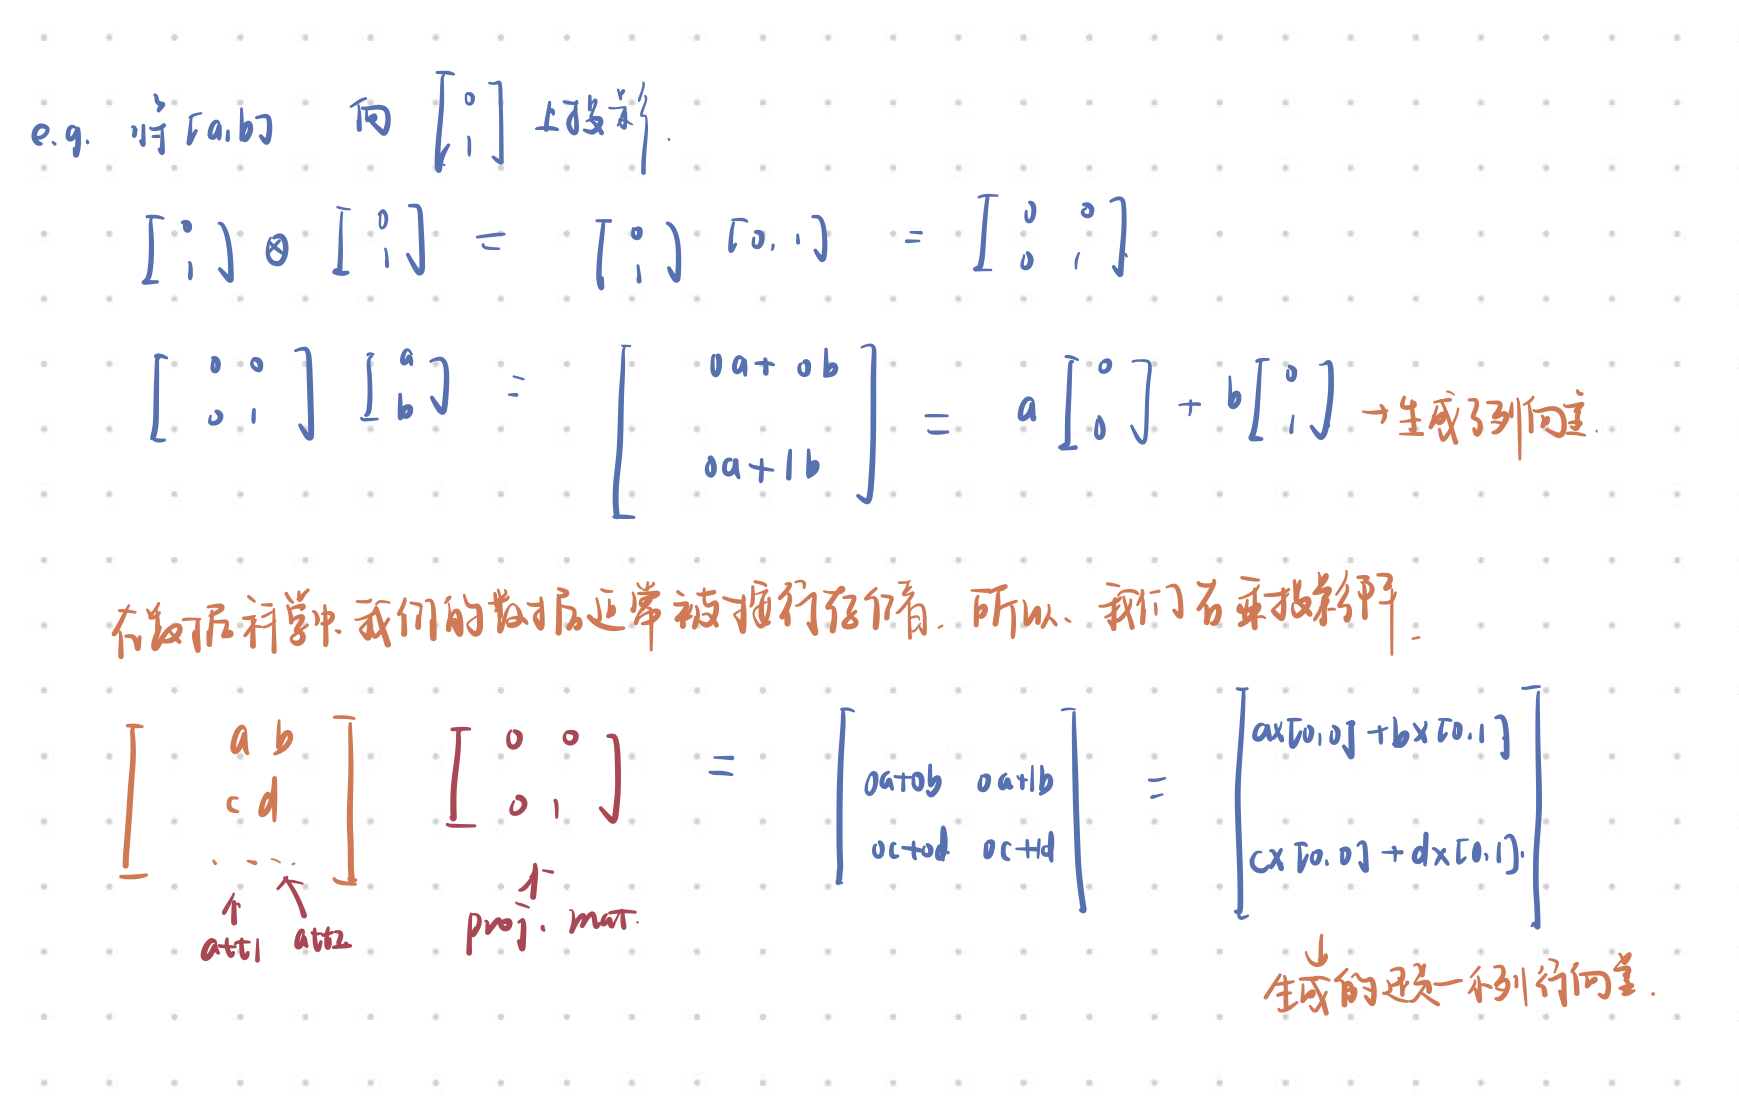 e.g. 将 [a,b] 向 [0 1] 上投影.
[0 1] ⊗ [0 1] = [0 1] [0, 1] = [0 0 0 1]
[0 0 0 1] [a b] = [0a+0b 0a+1b] = a[0 0] + b[0 1] → 生成了列向量.
在数据科学中, 我们的数据通常被按行存储着. 所以、我们右乘投影矩阵.
[a b c d ...] [0 0 0 1] = [0a+0b 0a+1b 0c+0d 0c+1d] = [a×[0,0]+b×[0,1] c×[0,0]+d×[0,1].]
att1 att2 proj. mat.
生成的还是一系列行向量.